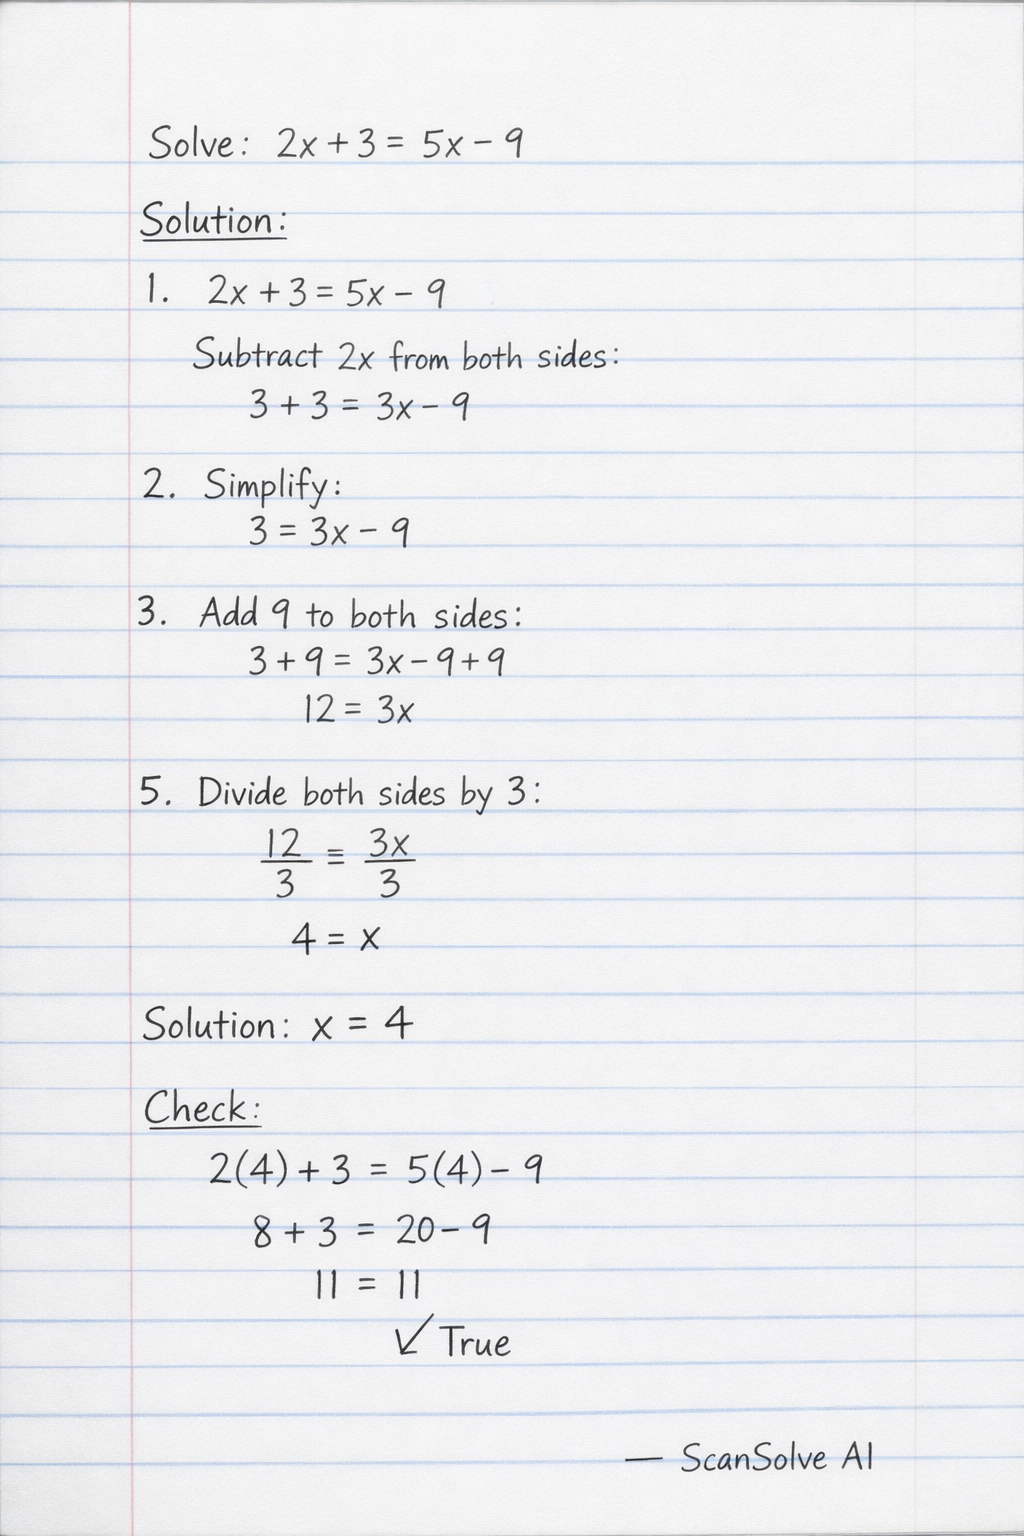 Solve: 2x + 3 = 5x - 9
Solution:
1. 2x + 3 = 5x - 9
Subtract 2x from both sides:
3 + 3 = 3x - 9
2. Simplify:
3 = 3x - 9
3. Add 9 to both sides:
3 + 9 = 3x - 9 + 9
12 = 3x
5. Divide both sides by 3:
12/3 ≡ 3x/3
4 = x
Solution: x = 4
Check:
2(4) + 3 = 5(4) - 9
8 + 3 = 20 - 9
11 = 11
✓ True
— ScanSolve AI